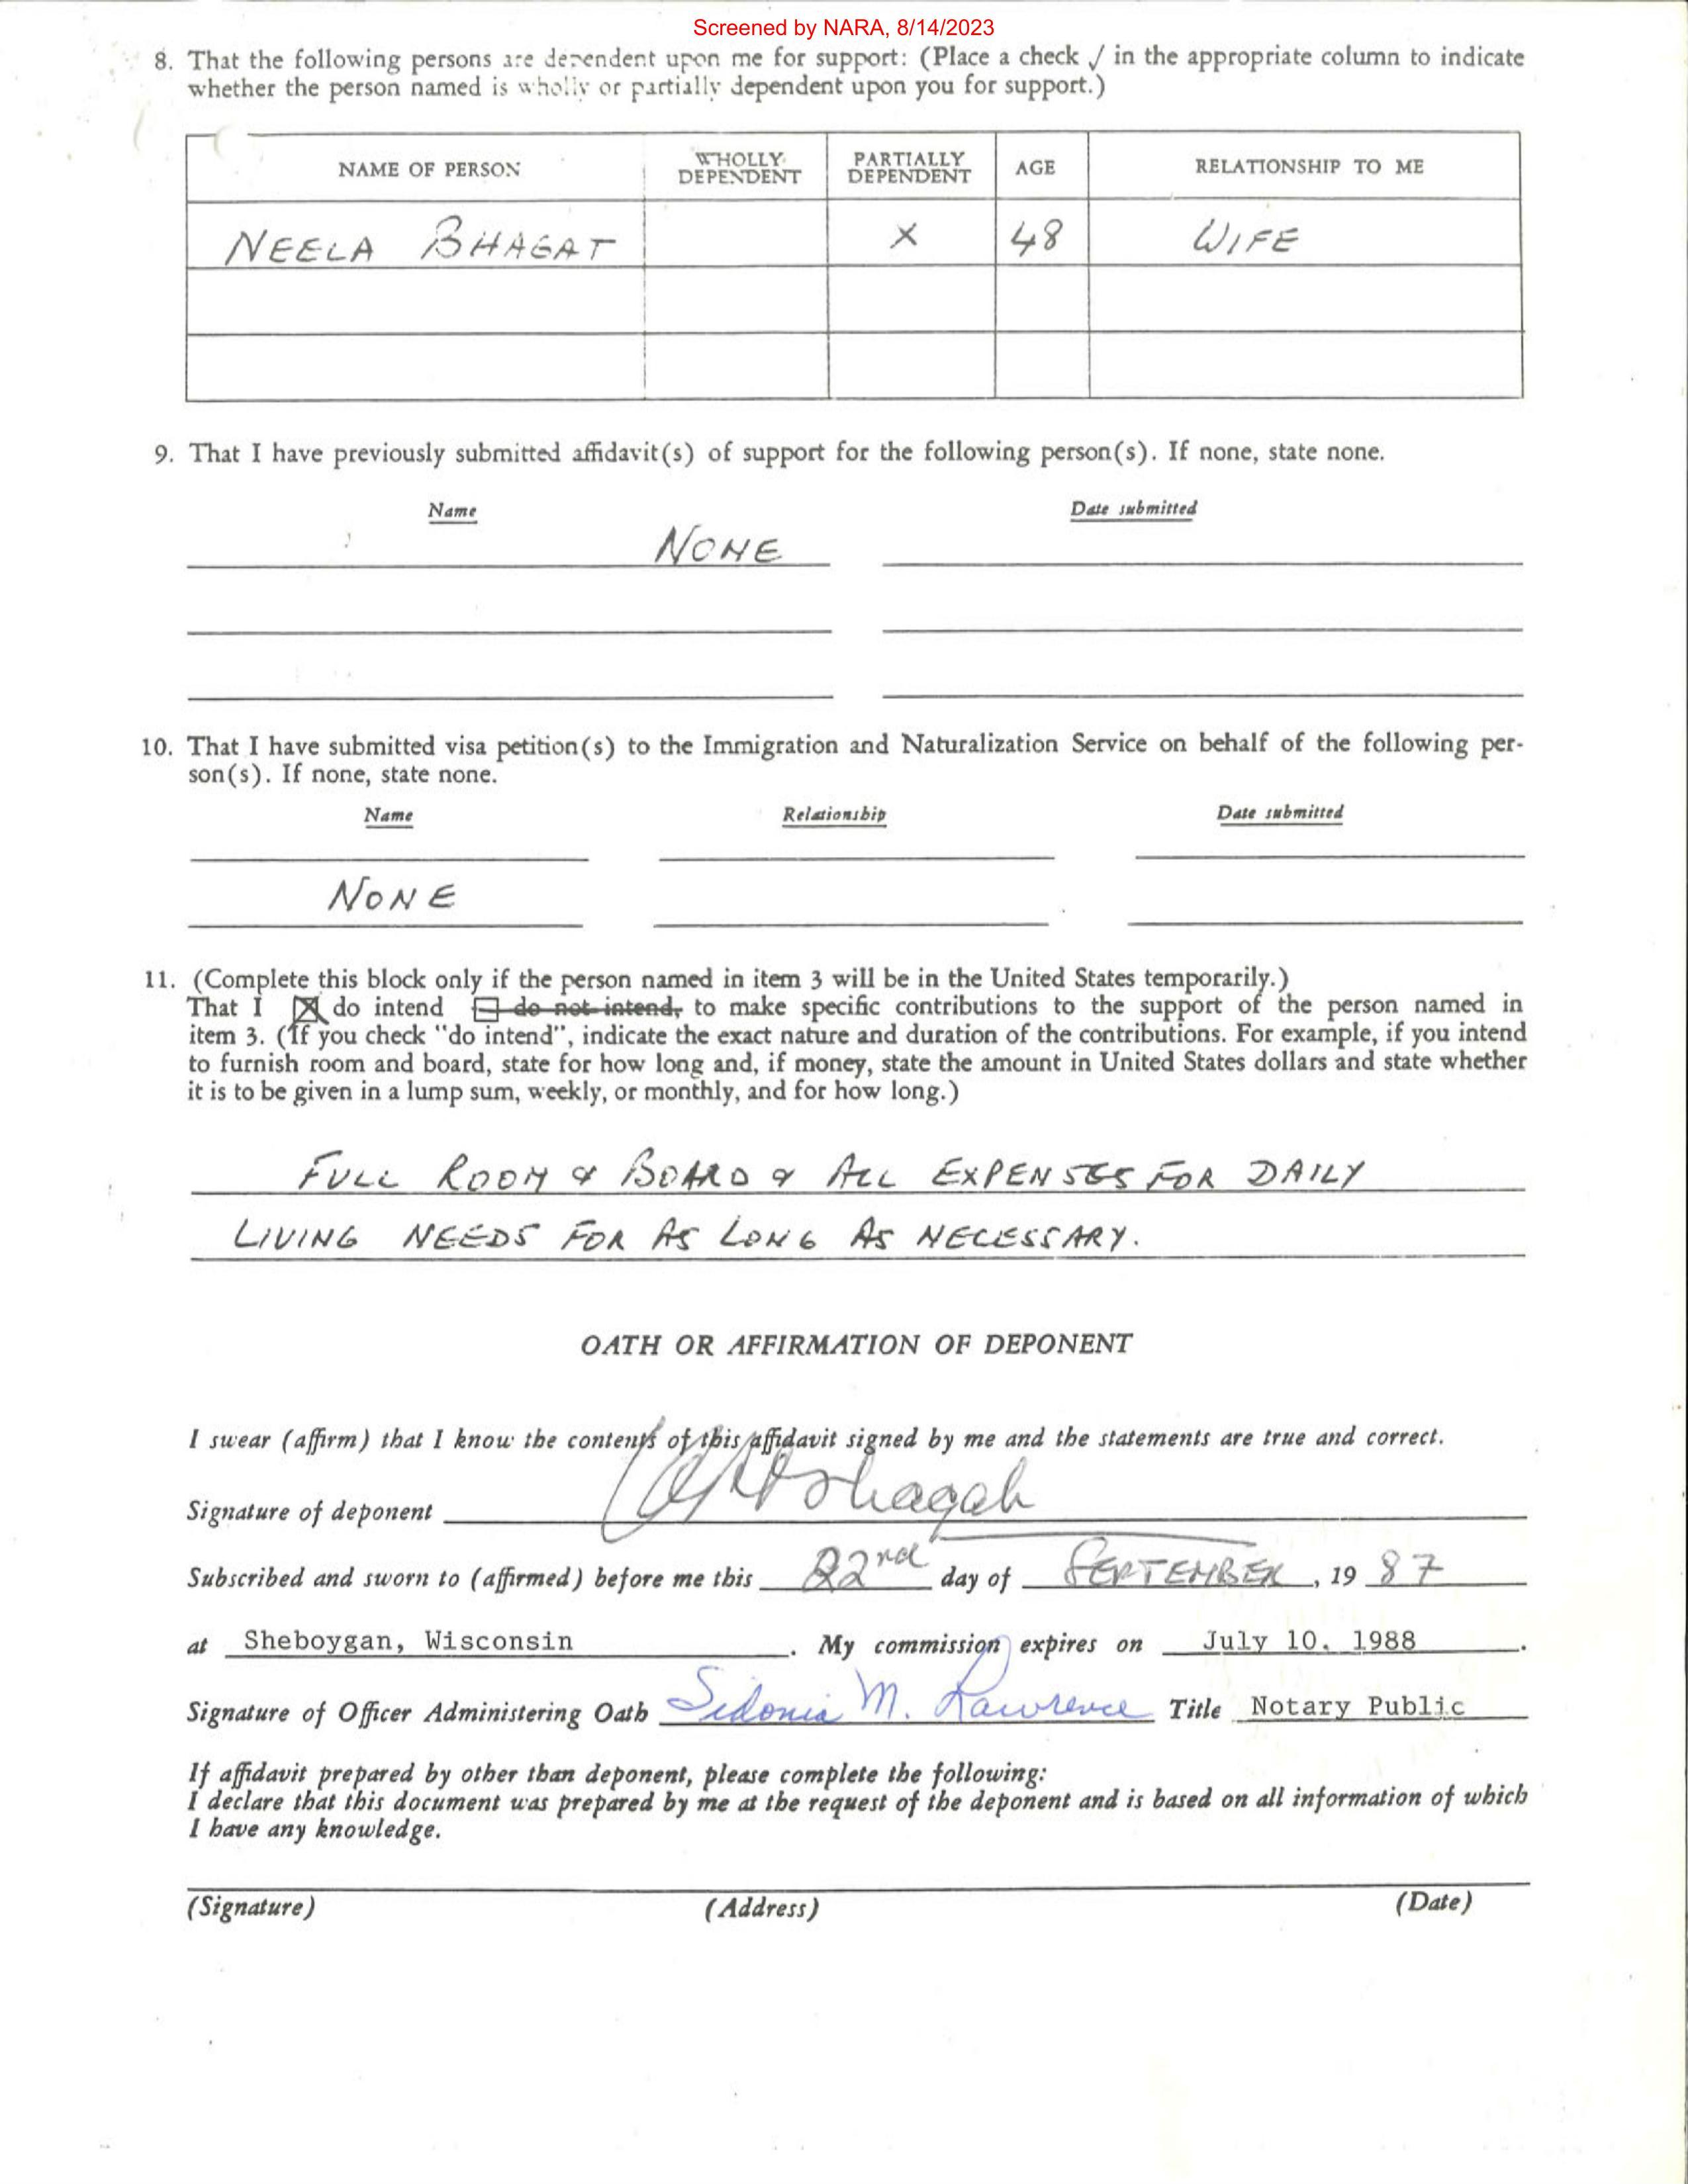 Screened by NARA, 8/14/2023
8. That the following persons are dependent upon me for support: (Place a check √ in the appropriate column to indicate
whether the person named is wholly or partially dependent upon you for support.)
NAME OF PERSON WHOLLY DEPENDENT PARTIALLY DEPENDENT AGE RELATIONSHIP TO ME
NEELA BHAGAT X 48 WIFE
9. That I have previously submitted affidavit(s) of support for the following person(s). If none, state none.
Name Date submitted
NONE
10. That I have submitted visa petition(s) to the Immigration and Naturalization Service on behalf of the following per-
son(s). If none, state none.
Name Relationship Date submitted
NONE
11. (Complete this block only if the person named in item 3 will be in the United States temporarily.)
That I ☒ do intend ☐ do not intend, to make specific contributions to the support of the person named in
item 3. (If you check "do intend", indicate the exact nature and duration of the contributions. For example, if you intend
to furnish room and board, state for how long and, if money, state the amount in United States dollars and state whether
it is to be given in a lump sum, weekly, or monthly, and for how long.)
FULL ROOM & BOARD & ALL EXPENSES FOR DAILY
LIVING NEEDS FOR AS LONG AS NECESSARY.
OATH OR AFFIRMATION OF DEPONENT
I swear (affirm) that I know the contents of this affidavit signed by me and the statements are true and correct.
Signature of deponent
Subscribed and sworn to (affirmed) before me this 22nd day of SEPTEMBER, 19 87
at Sheboygan, Wisconsin. My commission expires on July 10, 1988.
Signature of Officer Administering Oath Sidonia M. Lawrence Title Notary Public
If affidavit prepared by other than deponent, please complete the following:
I declare that this document was prepared by me at the request of the deponent and is based on all information of which
I have any knowledge.
(Signature) (Address) (Date)